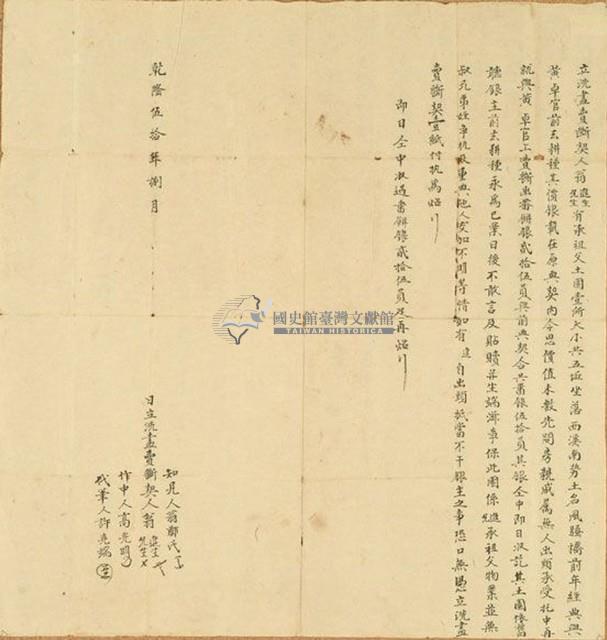 立洗盡賣斷契人翁進生先生有承祖父土園壹所大小共五坵坐落西溪南勢土名風騷橋前年經典與
黃卓官前去耕種其價銀載在原典契內今思價值未敷先問房親戚屬無人出頭承受托中再
就與黃卓官上賣斷出番銀貳拾伍員與前典契合共番銀伍拾員其銀仝中即日收訖其土園依舊
聽銀主前去耕種永為己業日後不敢言及貼贖并生端滋事保此園係進先承祖父物業並無
叔兄弟姪爭執及重典他人交加不明等情如有進自出頭抵當不干銀主之事恐口無憑立洗盡
賣斷契壹紙付執為炤
即日仝中收過番銀貳拾伍員足再炤
乾隆伍拾年捌月　日立洗盡賣斷契人翁進生先生
知見人翁鄭氏
作中人高光明
代筆人許光端
國史館臺灣文獻館
TAIWAN HISTORICA